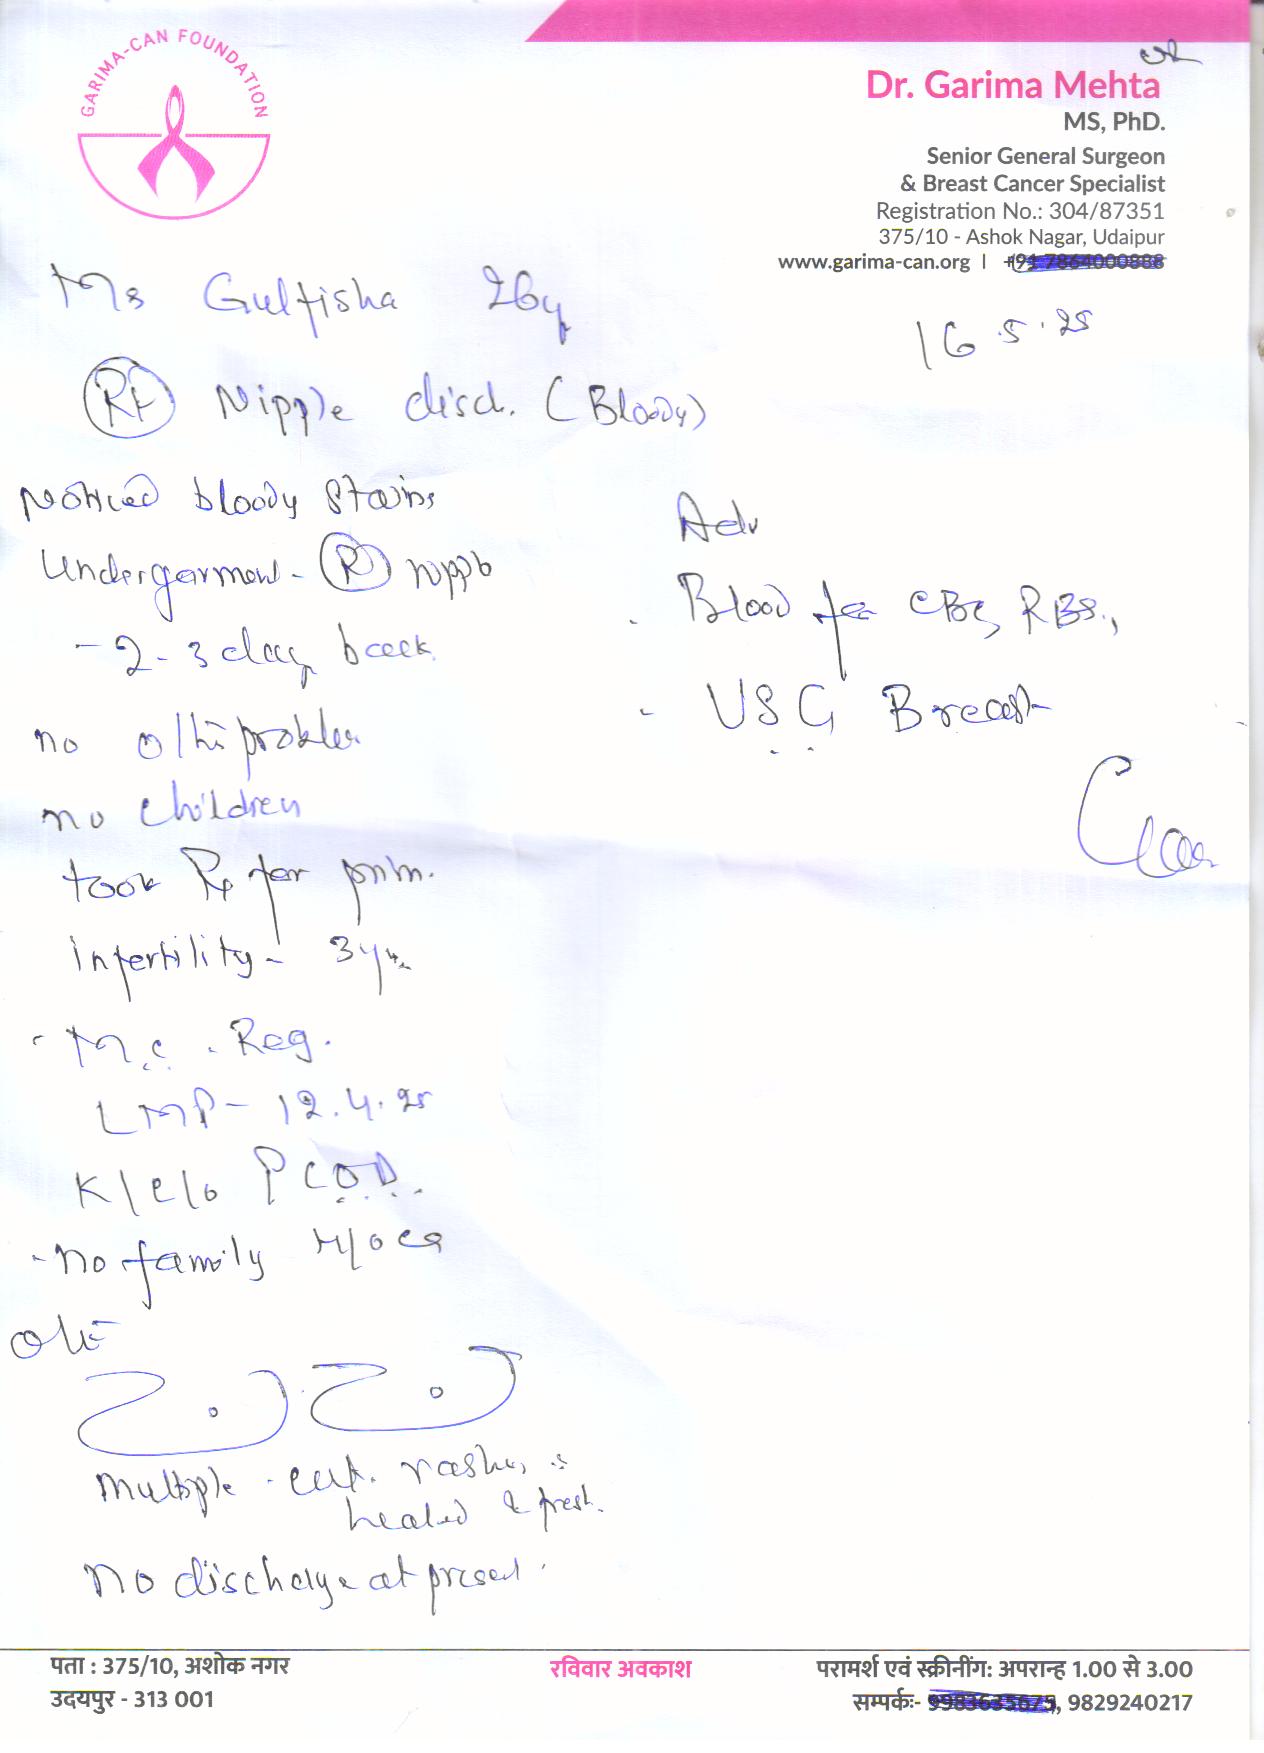 GARIMA-CAN FOUNDATION
Dr. Garima Mehta
MS, PhD.
Senior General Surgeon
& Breast Cancer Specialist
Registration No.: 304/87351
375/10 - Ashok Nagar, Udaipur
www.garima-can.org I +91 7864000888
Ms Gulfisha 26y
16.5.25
Rt Nipple disch. (Bloody)
Noticed bloody stains
Undergarment - R nipple
- 2-3 day back.
no other problem
no children
took Rx for prim.
infertility - 3yr.
- M.C. Reg.
LMP - 12.4.25
K/c/o PCOD.
- no family H/o ca
O/E
Multiple cut. rashes
healed & fresh.
No discharge at present.
Adv
Blood for CBC, RBS.,
- USG Breast
पता : 375/10, अशोक नगर
उदयपुर - 313 001
रविवार अवकाश
परामर्श एवं स्क्रीनींग: अपरान्ह 1.00 से 3.00
सम्पर्कः- 9983635675, 9829240217